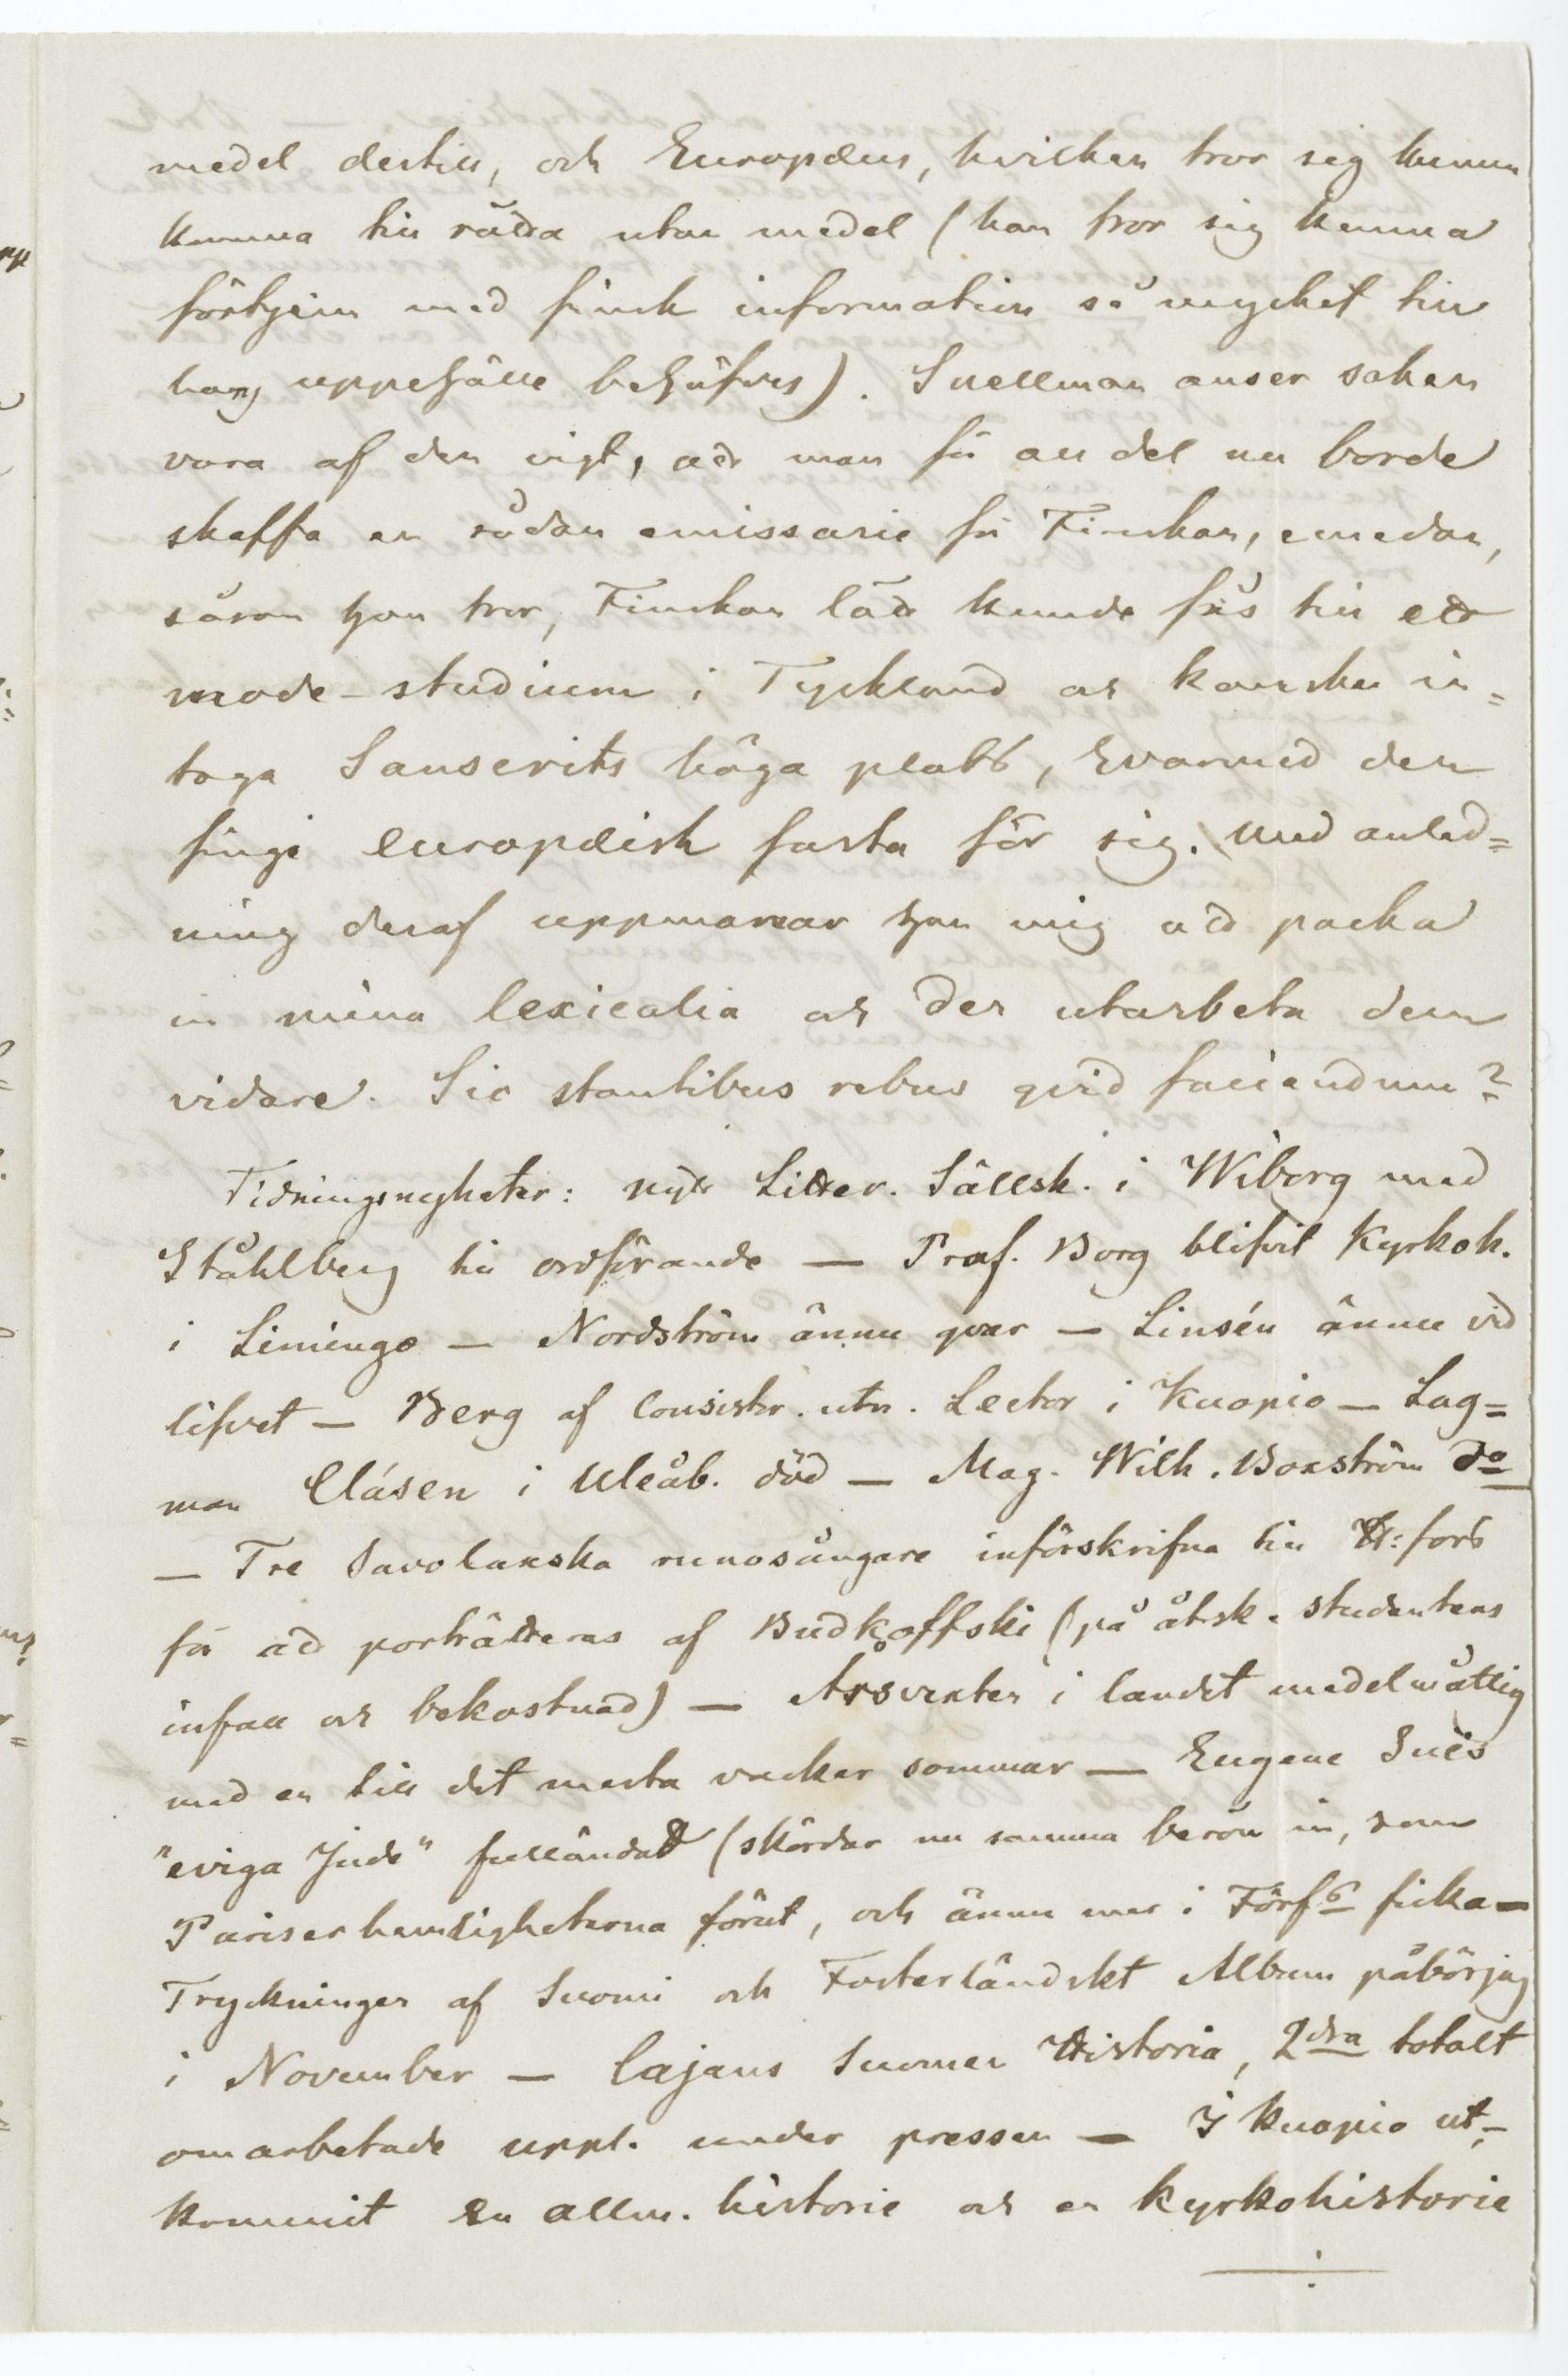 medel dertill, och Europæus, hvilken tror sig kunna
kunna till rätta utan medel (han tror sig kunna
förtjena med finsk information så mycket till
hans uppehälle behöfves). Snellman anser saken
vara af den vigt, att man för all del nu borde
skaffa en sådan emissarie för Finskan, emedan,
såsom han tror, Finskan lätt kunde fås till ett
mode-studium i Tyckland och kanske in=
taga Sanscrits höga plats, hvarmed den
finge europæisk fasta för sig. Med anled=
ning deraf uppmanar han mig att packa
in mina lexicalia och der utarbeta dem
vidare. Sic stantibus rebus qvid faciendum?
Tidningsnyheter: nytt Litter. Sällsk. i Wiborg med
Ståhlberg till ordförande — Prof. Borg blifvit Kyrkoh.
i Limingo — Nordström ännu qvar — Linsén ännu vid
lifvet — Berg af Consistor. utn. Lector i Kuopio — Lag=
man Clásen i Uleåb. död — Mag. Wilh. Boxström do
— Tre Savolaxska runosångare införskrifna till H:fors
för att porträtteras af Budkoffski (på åtsk. studenters
infall och bekostnad) — Årsvexten i landet medelmåttig
med en till det mesta vacker sommar — Eugene Sües
"eviga Jude" fulländad (skördar nu samma beröm in, som
Pariserhemligheterna förut, och ännu mer i Förfs ficka —
Tryckningen af Suomi och Fosterländskt Album påbörjas
i November — Cajans Suomen Historia, 2dra totalt
omarbetade uppl. under pressen — I Kuopio ut-
kommit en allm. historie och en kyrkohistorie